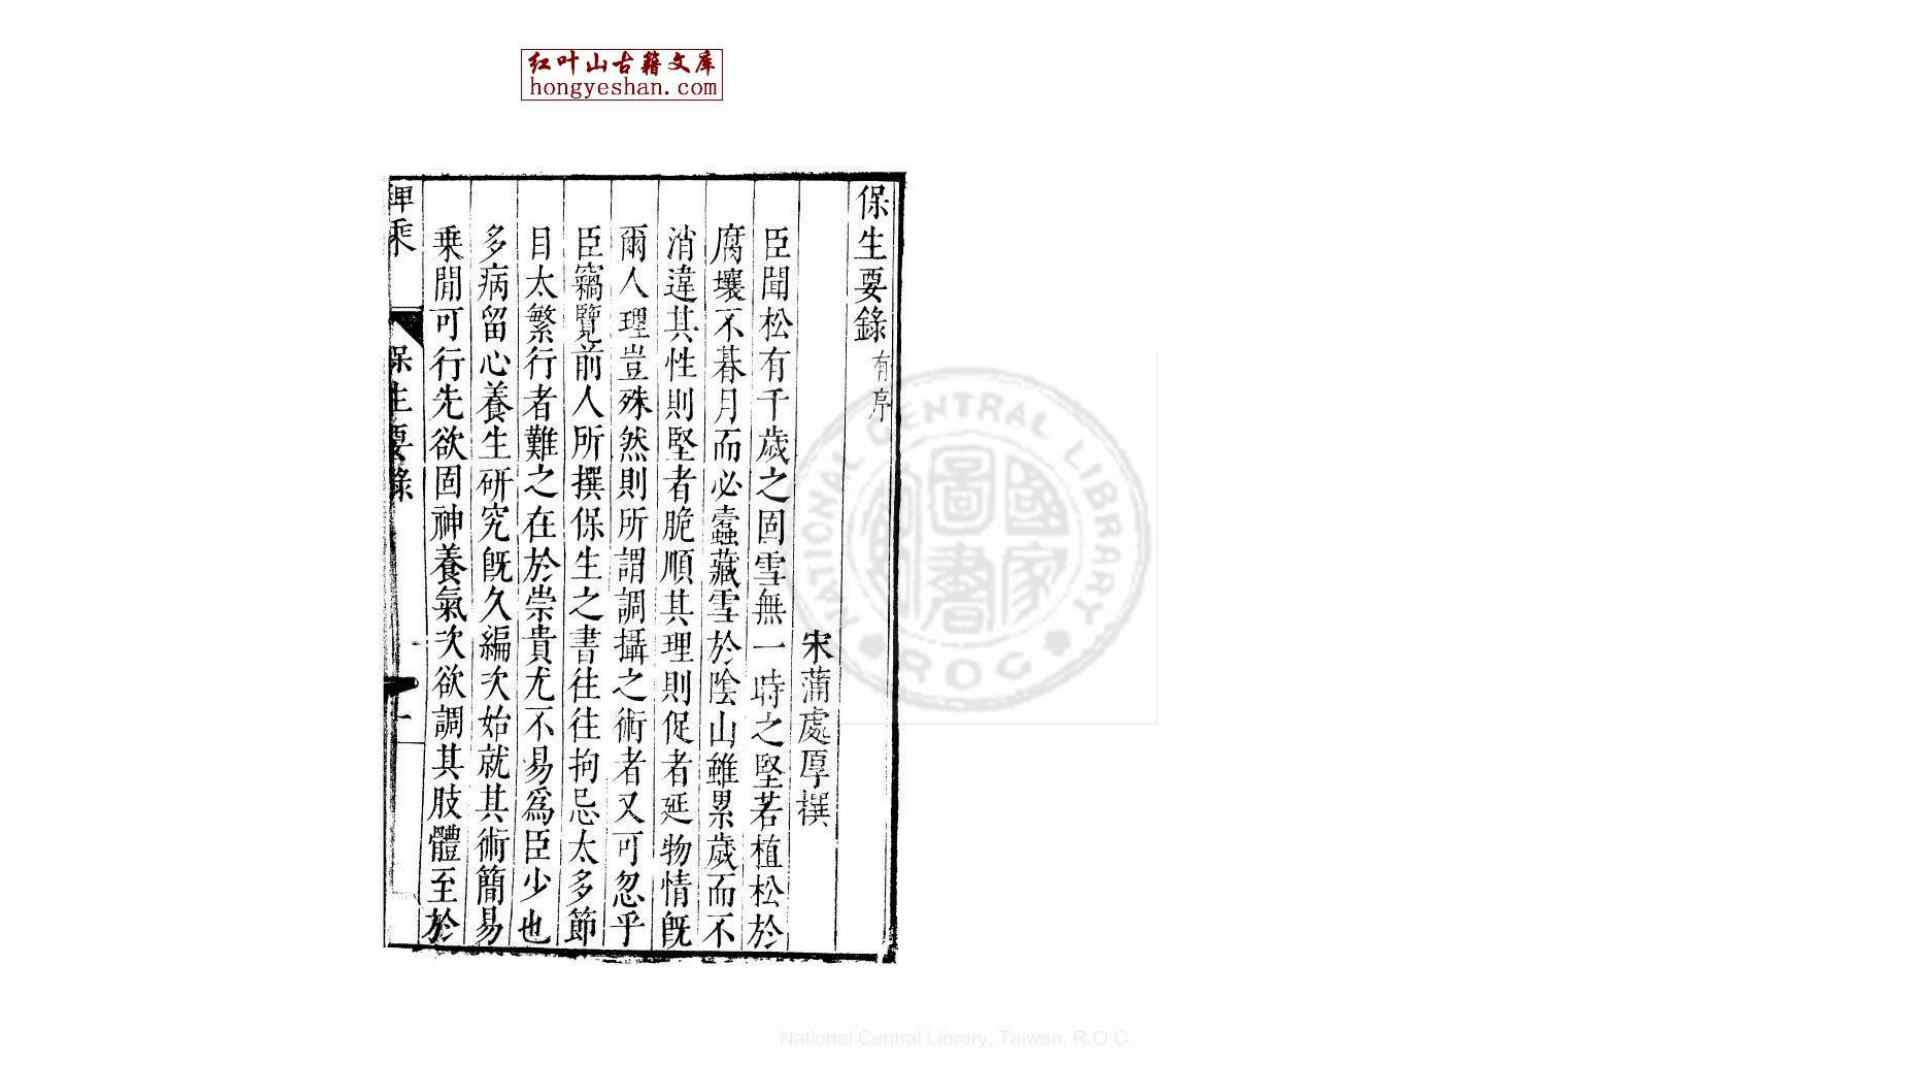 红叶山古籍文库
hongyeshan.com
保生要錄有序
宋蒲處厚撰
臣聞松有千歲之固雪無一時之堅若植松於
腐壤不朞月而必蠹藏雪於陰山雖累歲而不
消違其性則堅者脆順其理則促者延物情旣
爾人理豈殊然則所謂調攝之術者又可忽乎
臣竊覽前人所撰保生之書往往拘忌太多節
目太繁行者難之在於崇貴尤不易爲臣少也
多病留心養生研究旣久編次始就其術簡易
乗閒可行先欲固神養氣次欲調其肢體至於
稗乘
保生要錄
一
NATIONAL CENTRAL LIBRARY
ROC
國家圖書
National Central Library, Taiwan, R.O.C.